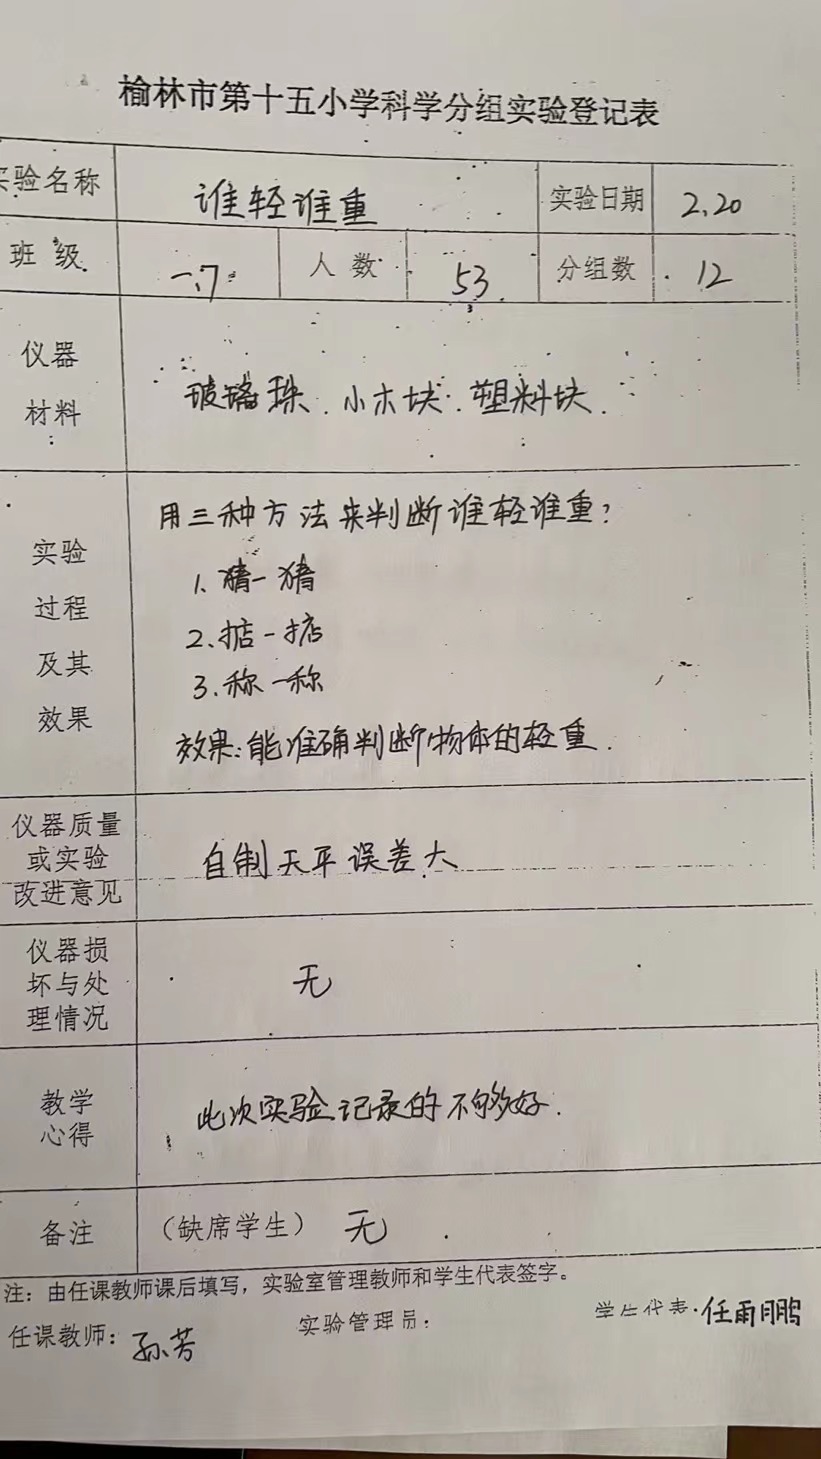 榆林市第十五小学科学分组实验登记表
实验名称 谁轻谁重 实验日期 2.20
班级 一.7 人数 53 分组数 12
仪器
材料
玻璃珠.小木块.塑料块.
实验
过程
及其
效果
用三种方法来判断谁轻谁重?
1.猜一猜
2.掂一掂
3.称一称
效果:能准确判断物体的轻重.
仪器质量
或实验
改进意见
自制天平误差大
仪器损
坏与处
理情况
无
教学
心得
此次实验记录的不够好.
备注 (缺席学生) 无
注:由任课教师课后填写,实验室管理教师和学生代表签字。
任课教师:孙芳 实验管理员: 学生代表.任雨鹏